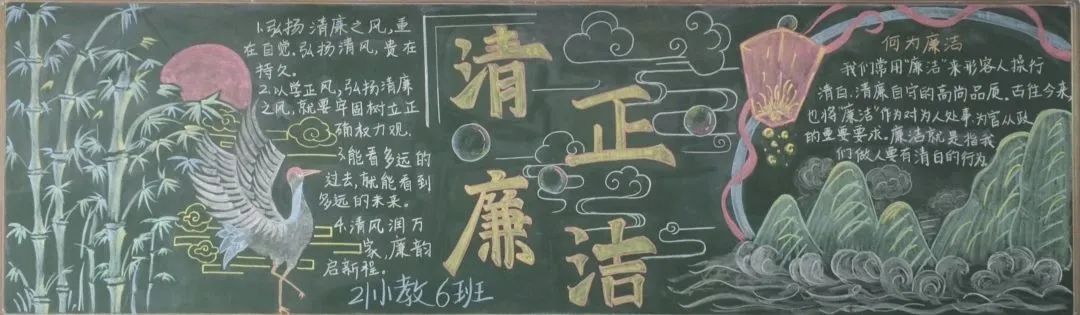 1.弘扬清廉之风,重
在自觉.弘扬清风,贵在
持久。
2.以学正风,弘扬清廉
之风,就要牢固树立正
确权力观.
3.能看多远的
过去,就能看到
多远的未来。
4.清风润万
家,廉韵
启新程。
21小教6班
清廉
正洁
何为廉洁
我们常用“廉洁”来形容人操行
清白、清廉自守的高尚品质。古往今来,
也将“廉洁”作为对为人处事为官从政
的重要要求。廉洁就是指我
们做人要有清白的行为